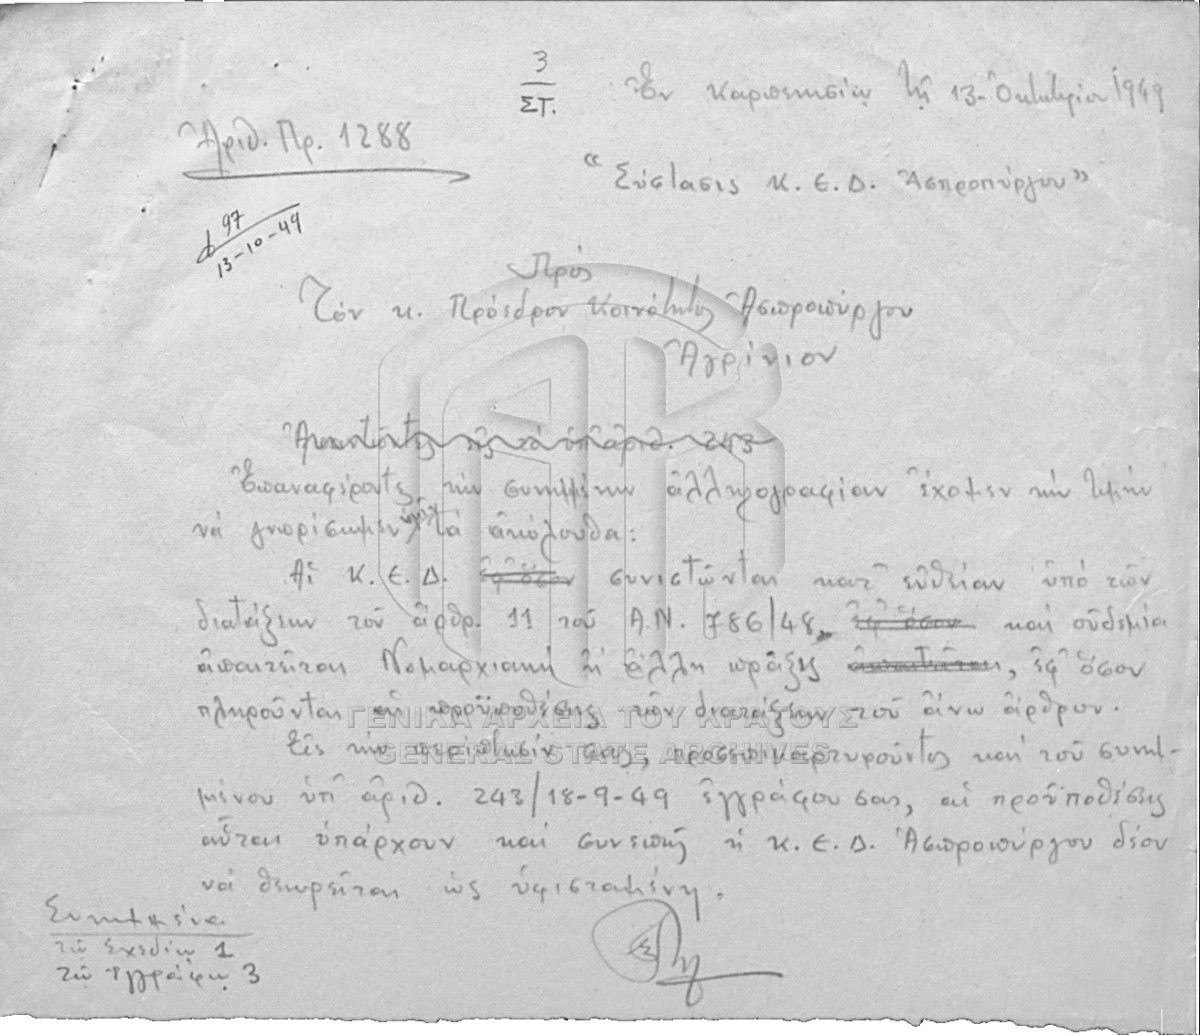 3
ΣΤ.
Ἐν Καρπενησίῳ τῇ 13 Ὀκτωβρίου 1949
Ἀριθ. Πρ. 1288
"Σύστασις Κ.Ε.Δ. Ἀσπροπύργου"
97
13-10-49
Πρός
Τόν κ. Πρόεδρον Κοινότητος Ἀσπροπύργου
Ἀγρίνιον
Ἀπαντῶντες εἰς τό ὑπ' ἀριθ. 243
Ἐπαναφέροντες τήν συνημμένην ἀλληλογραφίαν ἔχομεν τήν τιμήν
νά γνωρίσωμεν ὑμῖν τά ἀκόλουθα:
Αἱ Κ.Ε.Δ. ἐφ' ὅσον συνιστῶνται κατ' εὐθεῖαν ὑπό τῶν
διατάξεων τοῦ ἄρθρ. 11 τοῦ Α.Ν. 786/48, ἐφ' ὅσον καί οὐδεμία
ἀπαιτεῖται Νομαρχιακή ἤ ἄλλη πρᾶξις ἀπαιτεῖται, ἐφ' ὅσον
πληροῦνται αἱ προϋποθέσεις τῶν διατάξεων τοῦ ἄνω ἄρθρου.
ΓΕΝΙΚΑ ΑΡΧΕΙΑ ΤΟΥ ΚΡΑΤΟΥΣ
Εἰς τήν περίπτωσίν σας, προσεπιμαρτυροῦντος καί τοῦ συνημ-
GENERAL STATE ARCHIVES
μένου ὑπ' ἀριθ. 243/18-9-49 ἐγγράφου σας, αἱ προϋποθέσεις
αὗται ὑπάρχουν καί συνεπῶς ἡ Κ.Ε.Δ. Ἀσπροπύργου δέον
νά θεωρεῖται ὡς ὑφισταμένη.
Συνημμένα
τῷ Σχεδίῳ 1
τῷ ἐγγράφῳ 3